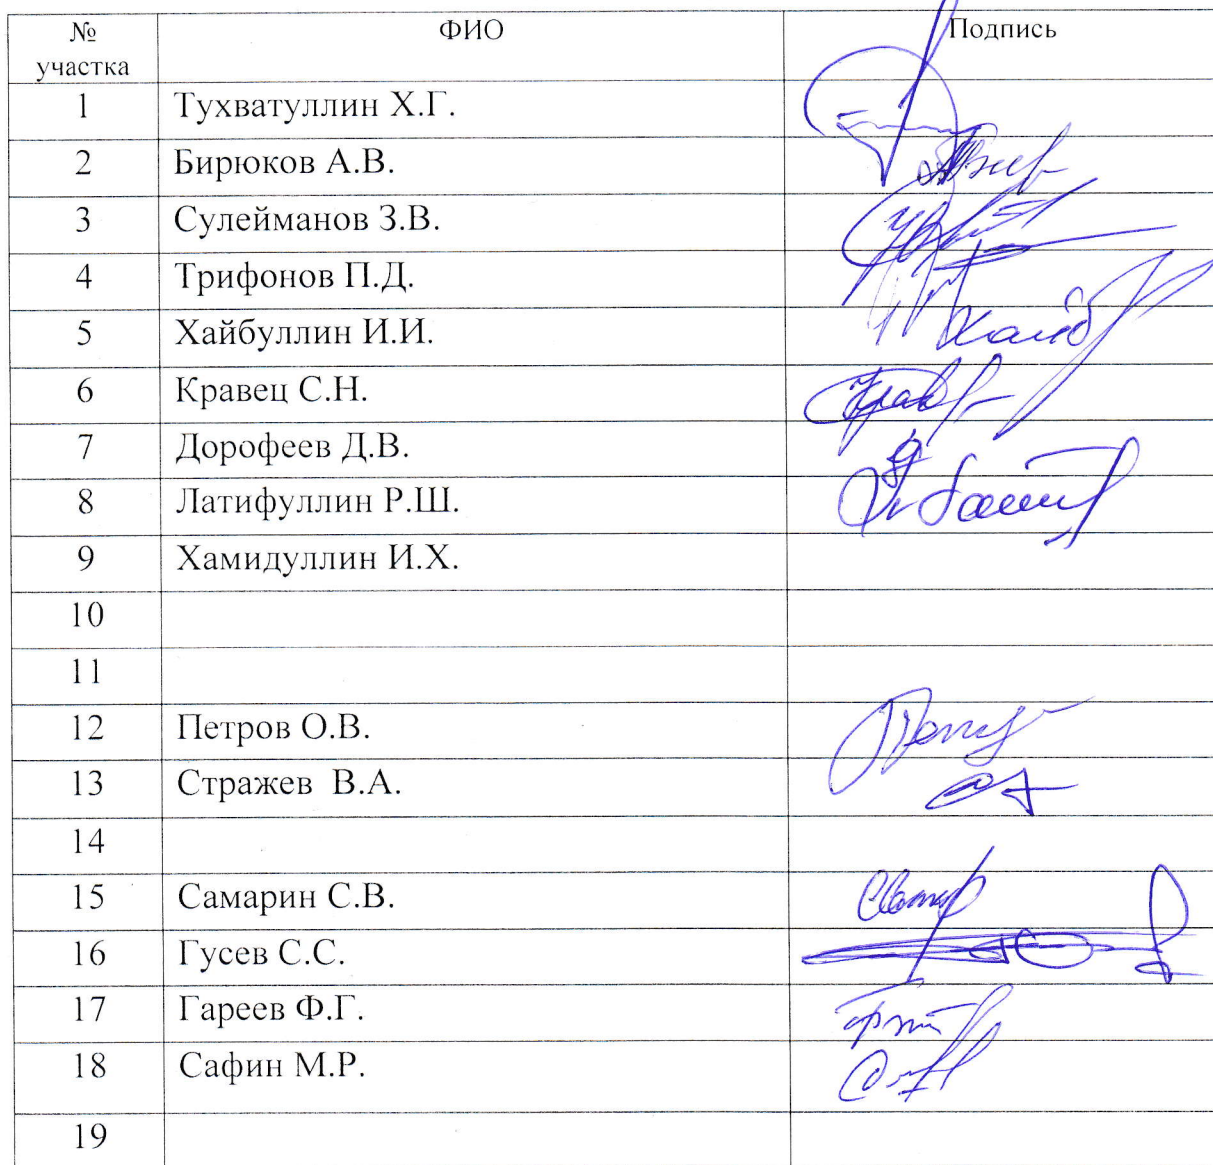 № участка ФИО Подпись
1 Тухватуллин Х.Г.
2 Бирюков А.В.
3 Сулейманов З.В.
4 Трифонов П.Д.
5 Хайбуллин И.И.
6 Кравец С.Н.
7 Дорофеев Д.В.
8 Латифуллин Р.Ш.
9 Хамидуллин И.Х.
10
11
12 Петров О.В.
13 Стражев В.А.
14
15 Самарин С.В.
16 Гусев С.С.
17 Гареев Ф.Г.
18 Сафин М.Р.
19